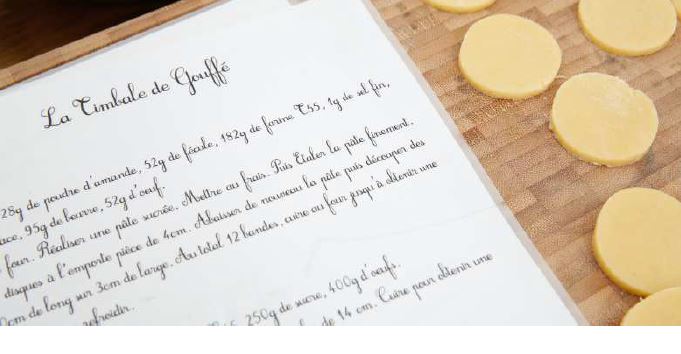 La Timbale de Gouffé
28g de poudre d'amande, 52g de fécule, 182g de farine T55, 1g de sel fin,
ace, 95g de beurre, 52g d'oeuf.
four. Réaliser une pâte sucrée. Mettre au frais. Puis Etaler la pâte finement.
disques à l'emporte pièce de 4cm. Abaisser de nouveau la pâte puis découper des
0cm de long sur 3cm de large. Au total 12 bandes, cuire au four jusqu'à obtenir une
refroidir.
250g de sucre, 400g d'oeufs.
de 14 cm. Cuire pour obtenir une